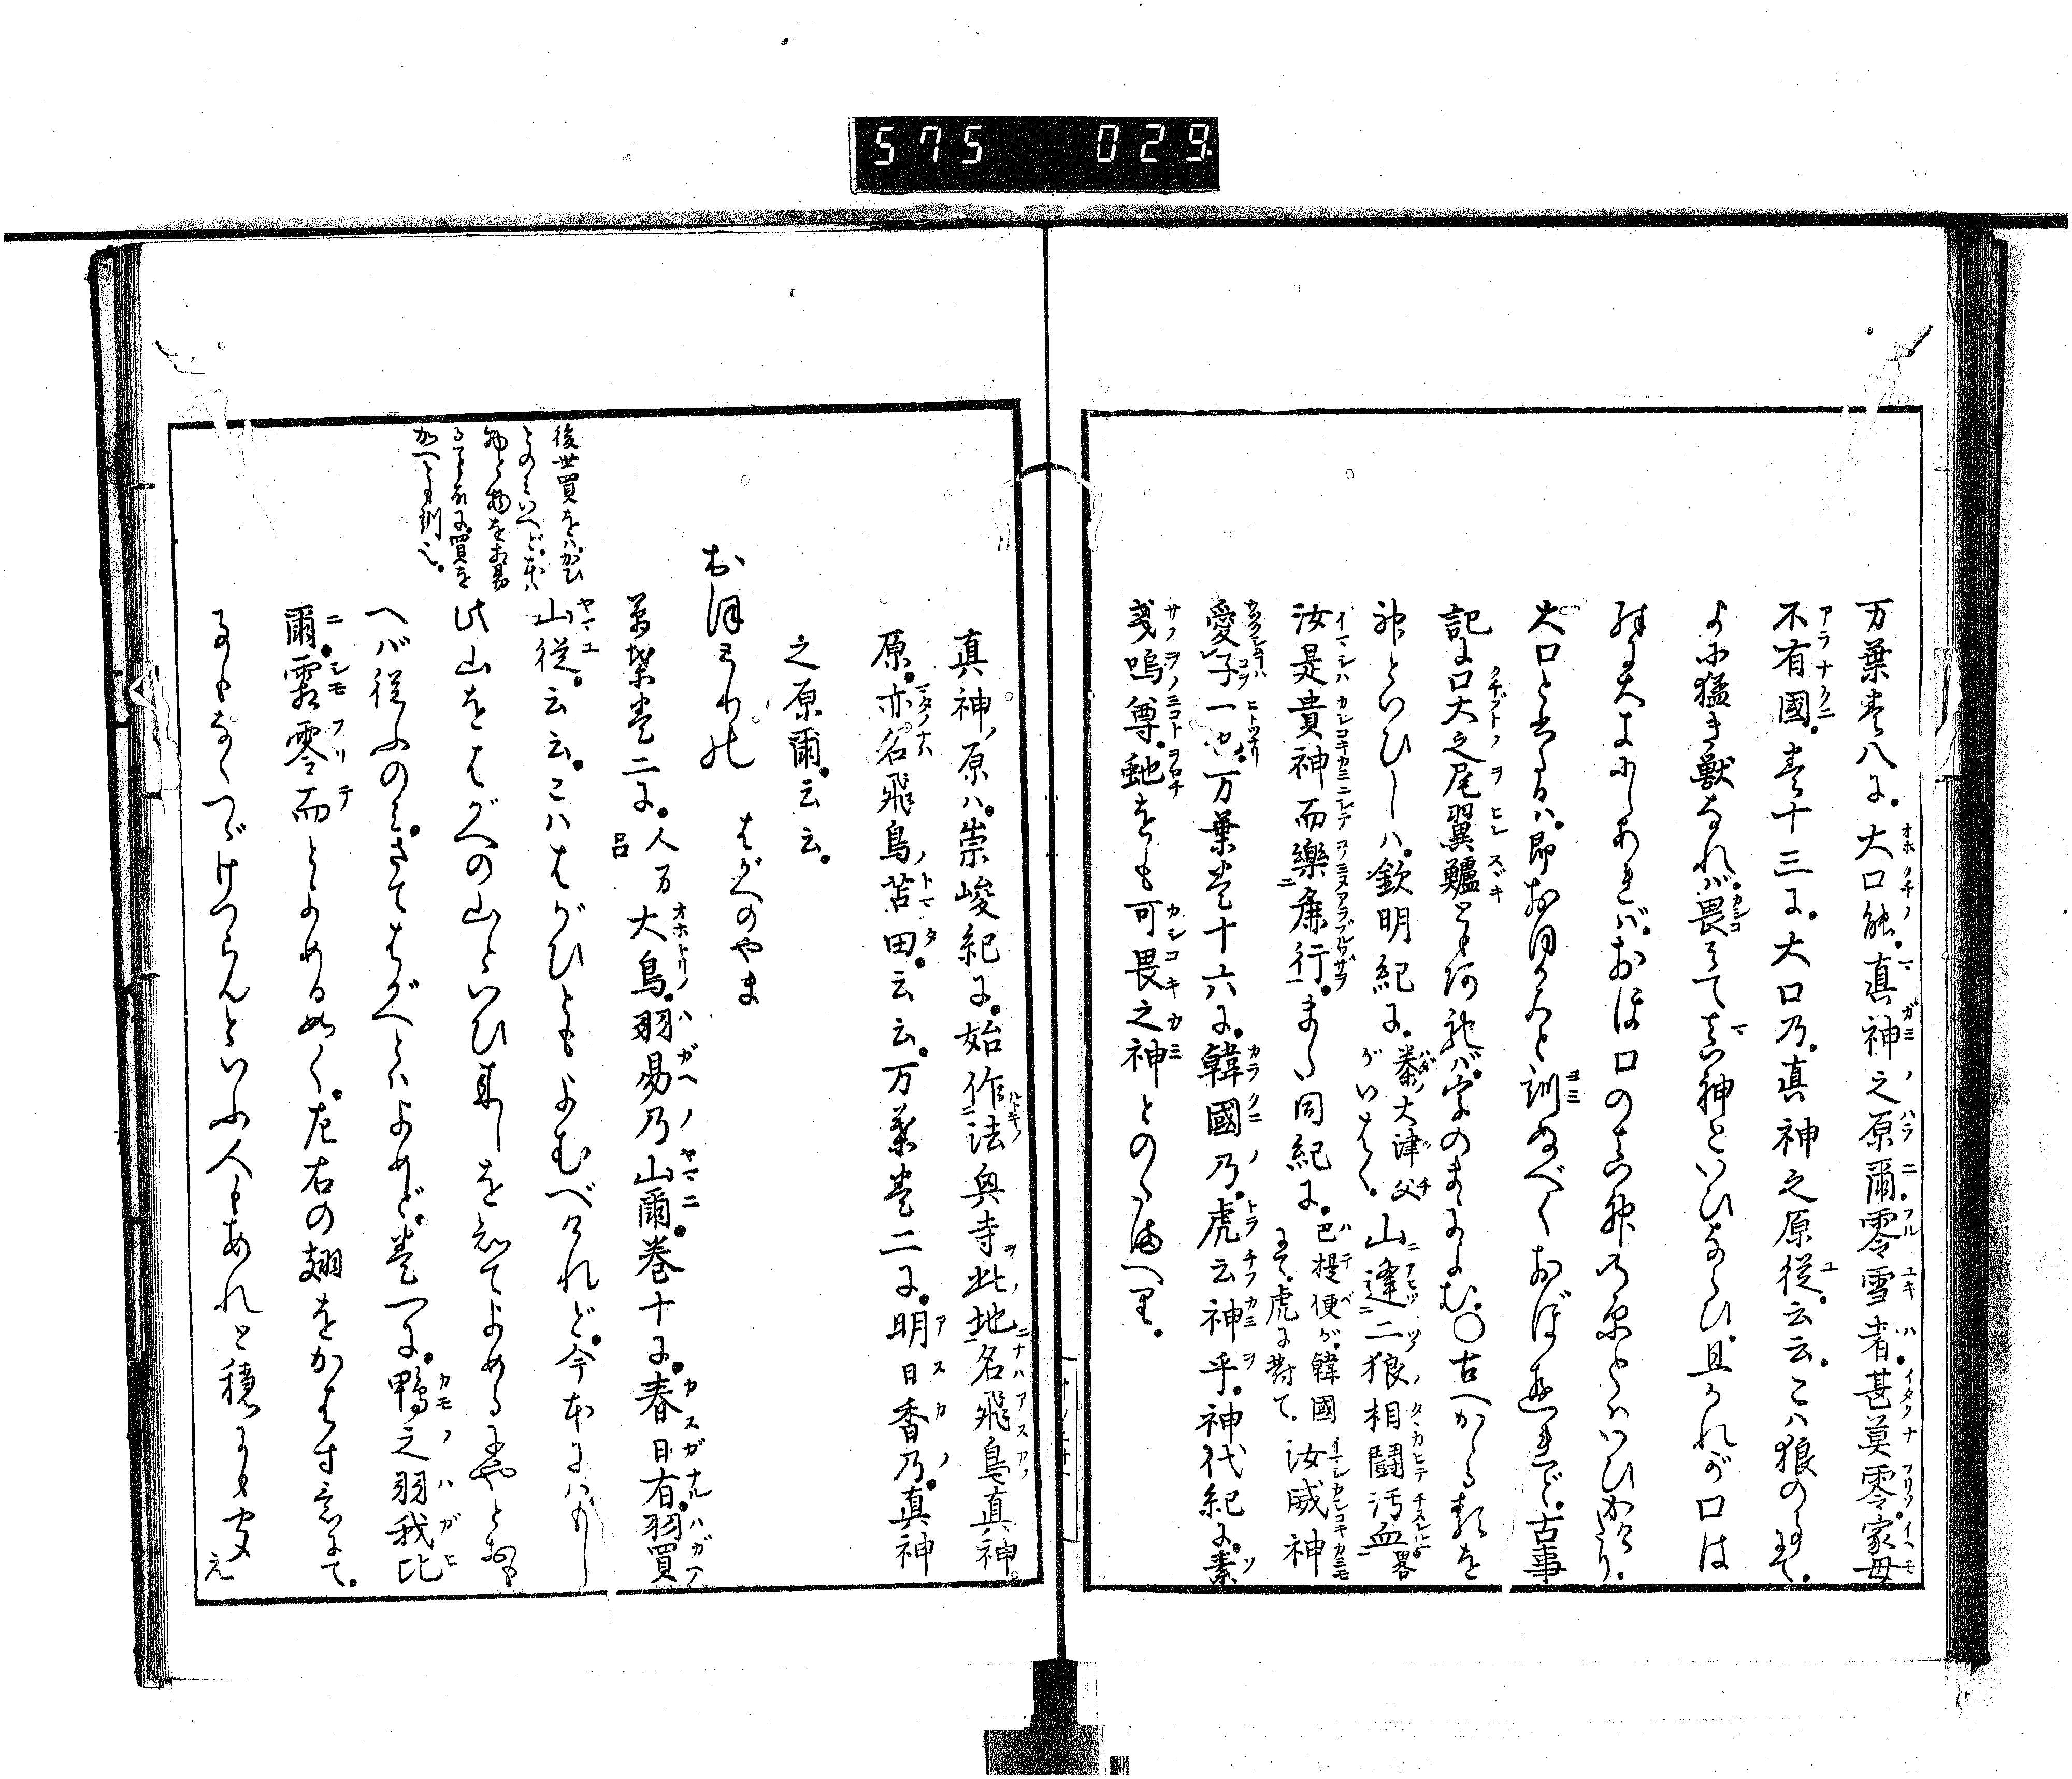 575 029
万葉巻八に。大口能。真神之原爾。零雪者。甚莫零。家母
不有國。巻十三に。大口乃。真神之原従。云云。こハ狼の事にて。
よに猛き獣なれバ。畏みて真神といひならひ。且かれが口は
殊に大きにしあれバ。おほ口の真神の原とハいひかけたり。
大口とあるハ。即おほくちと訓ぬべくおぼゆれど。古事
記に口大之尾翼鱸とも侍れバ。字のまゝによむ。〇古へかゝる類を
神といひしハ。欽明紀に。秦大津父がいはく。山逢二狼相闘汚血畧
汝是貴神而樂麁行。また同紀に。巴提便が韓國にて虎に対て。汝威神
愛子一也。万葉巻十六に。韓國乃。虎云神乎。神代紀に。素
戔嗚尊。虵をも可畏之神とのたまへり。
真神原ハ。崇峻紀に。始作法興寺此地名飛鳥真神。
原。亦名飛鳥苫田。云云。万葉巻二に。明日香乃。真神
之原爾。云云。
おほとりの はがへのやま
萬葉巻二に。人万呂 大鳥。羽易乃山爾。巻十に。春日有。羽買
山従。云云。こハはがひともよむべけれど。今本にハもし
此山をはがへの山といひ来しを知てよめるにやとおも
へバ従ふのみ。さてはがへとハよめど。巻一に。鴨之羽我比
爾。霜零而とよめる如く。左右の翅をかはす意にて。
事もなくつゞけつらんといふ人もあれと穏にも
え
後世買をハかひ
とのミいへど。本ハ
物と物を易
る事故に。買を
かへとも訓し。